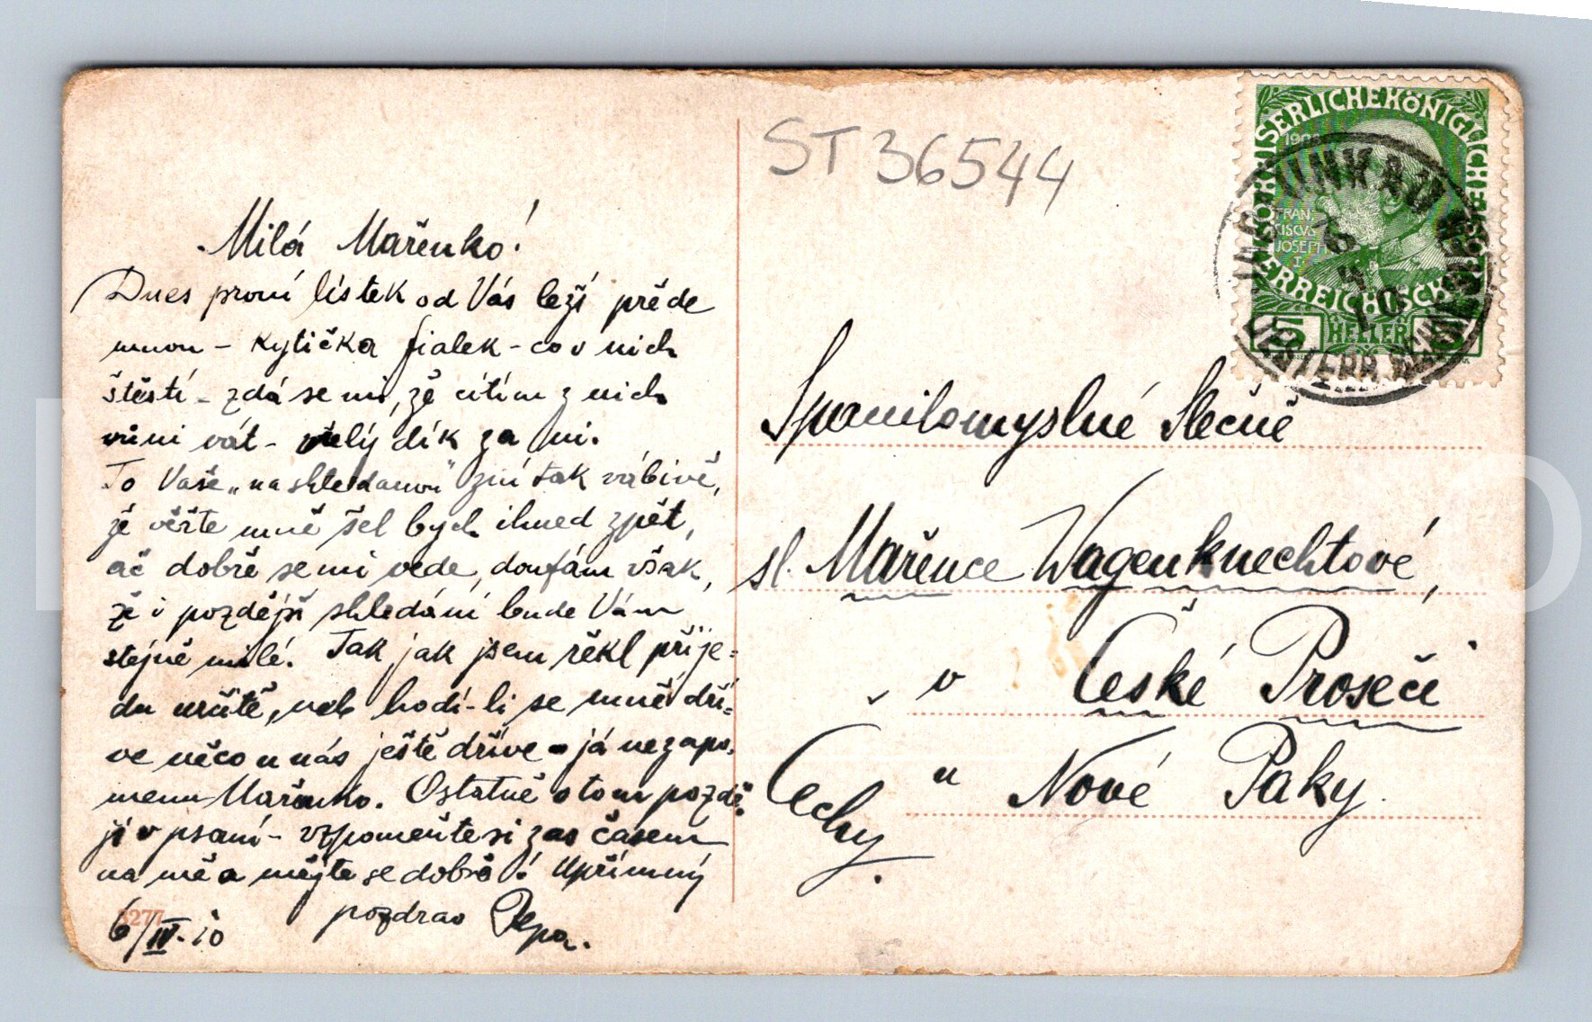 Milá Mařenko!
Dnes první lístek od Vás leží přede
mnou - kytička fialek - co v nich
štěstí - zdá se mi, že cítím z nich
vůni vát - velý dík za ni.
To Vaše „na shledanou" zní tak vábivě,
že věřte mně šel bych ihned zpět,
ač dobře se mi vede, doufám však,
že i pozdější shledání bude Vám
stejně milé. Tak jak jsem řekl přije=
du určitě, neb hodí-li se mně dří=
ve něco u nás ještě dříve - já nezapo.
menu Mařenko. Ostatně o tom pozdě.
ji v psaní - vzpomeňte si zas časem
na mě a mějte se dobře! Upřímný
pozdrav Pepa.
6/IV.10
3277
ST 36544
KAISERLICHE KÖNIGLICHE
1908
FRAN
CISCVS
JOSEPH
I
5 HELLER 5
Spanilomyslné Slečně
sl. Mařence Wagenknechtové,
v České Proseči
u Nové Paky.
Čechy.